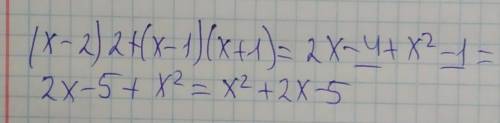 (x-2)2+(x-1)(x+1)=2x-4+x²-1=
2x-5+x²=x²+2x-5